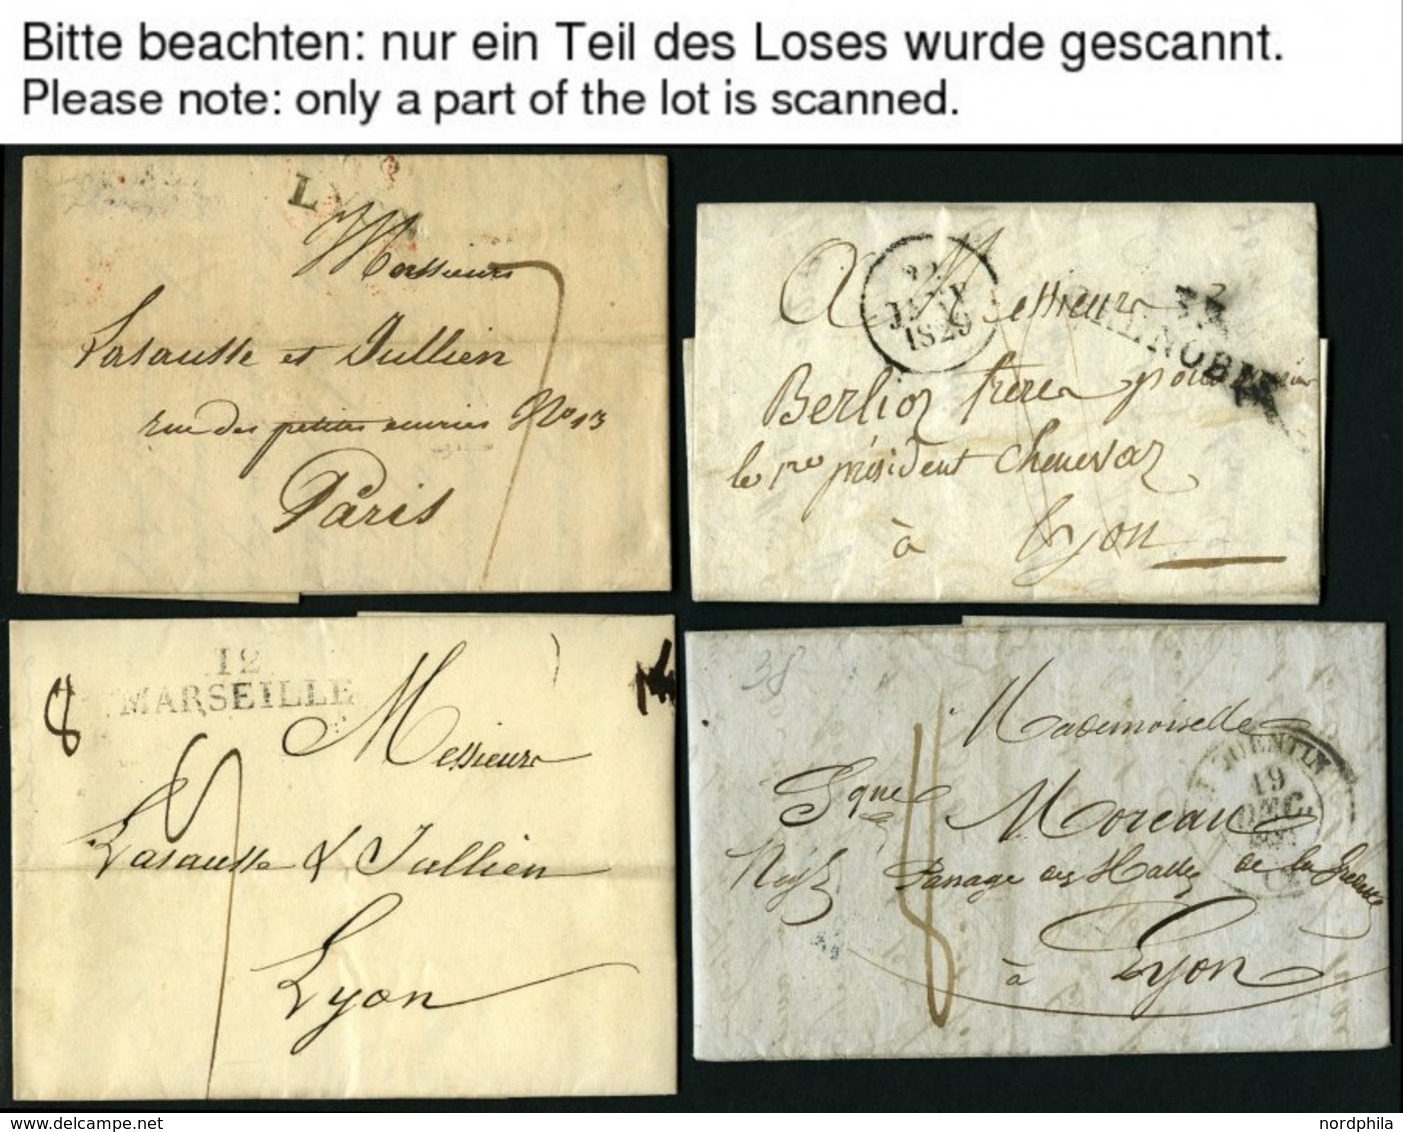 Bitte beachten: nur ein Teil des Loses wurde gescannt.
Please note: only a part of the lot is scanned.
L
Messieurs
7
Lasausse et Jullien
rue des petites ecuries No 13
Paris
22
JANV
1829
A Messieurs
GRENOBLE
Berlioz frères pour
le 1re président Chenevaz
à Lyon
12
MARSEILLE
8
Messieurs
Lasausse & Jullien
Lyon
38
Mademoiselle
QUENTIN
19
DEC
Moreau
Passage des Halles de la Grenette
à Lyon
www.delcampe.net
nordphila